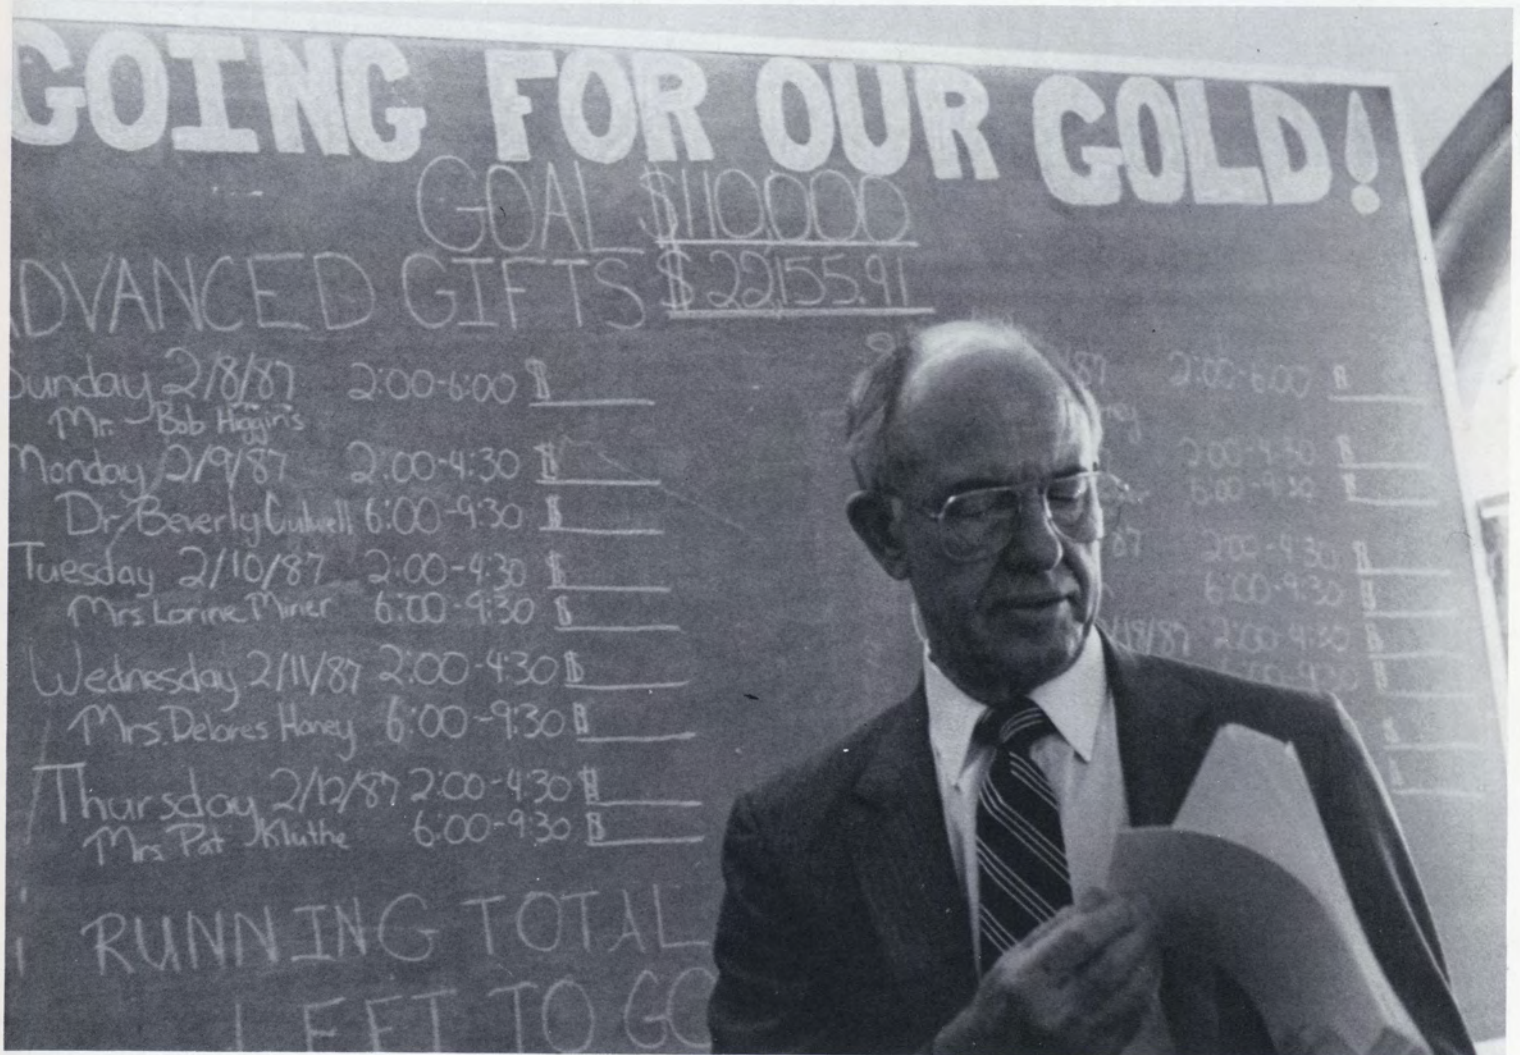 GOING FOR OUR GOLD!
GOAL $110,000
ADVANCED GIFTS $22,155.91
Sunday 2/8/87 2:00-6:00 $
Mr. Bob Higgins
Monday 2/9/87 2:00-4:30 $
Dr. Beverly Culwell 6:00-9:30 $
Tuesday 2/10/87 2:00-4:30 $
Mrs Lorine Miner 6:00-9:30 $
Wednesday 2/11/87 2:00-4:30 $
Mrs. Delores Honey 6:00-9:30 $
Thursday 2/12/87 2:00-4:30 $
Mrs Pat Kluthe 6:00-9:30 $
RUNNING TOTAL
LEFT TO GO
87 2:00-6:00 $
2:00-4:30 $
6:00-9:30 $
87 2:00-4:30 $
6:00-9:30 $
/18/87 2:00-4:30 $
$
$
$